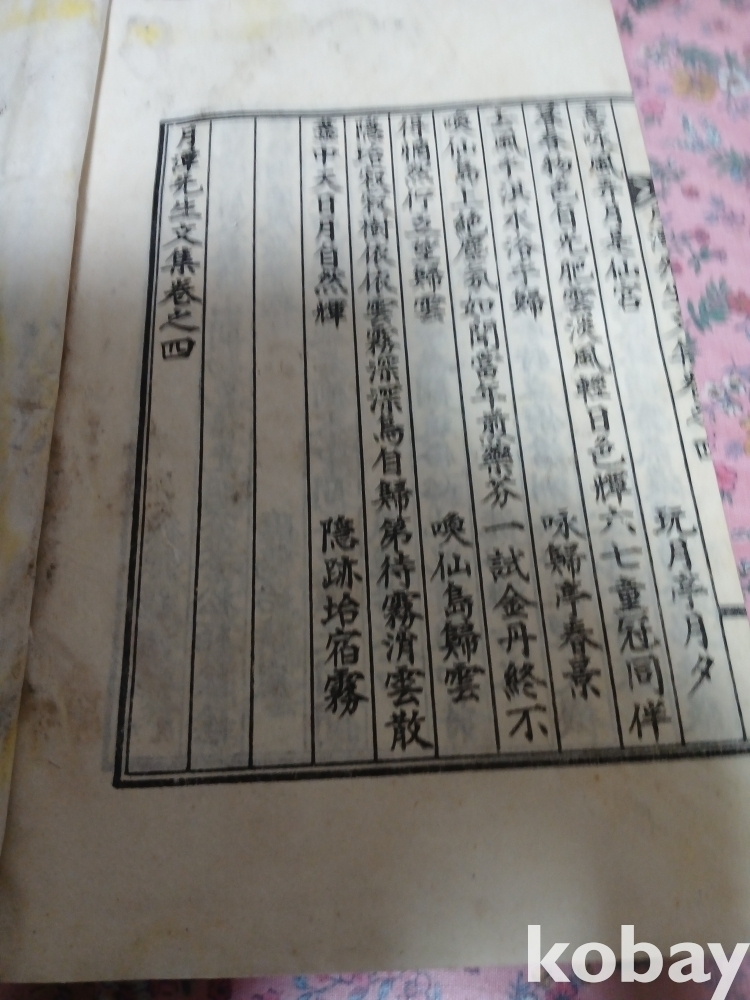 詠風弄月是仙宮 玩月亭月夕
春物色目先肥雲淡風輕日色輝六七童冠同伴
上風乎淇水浴乎歸 咏歸亭春景
喚仙島上絶塵氛如聞當年煎藥芬一試金丹終不
得惆然行之望歸雲 喚仙島歸雲
隱坮寂寂樹依依雲霧深深鳥自歸第待霧消雲散
盡中天日月自然輝 隱跡坮宿霧
月潭先生文集卷之四
kobay